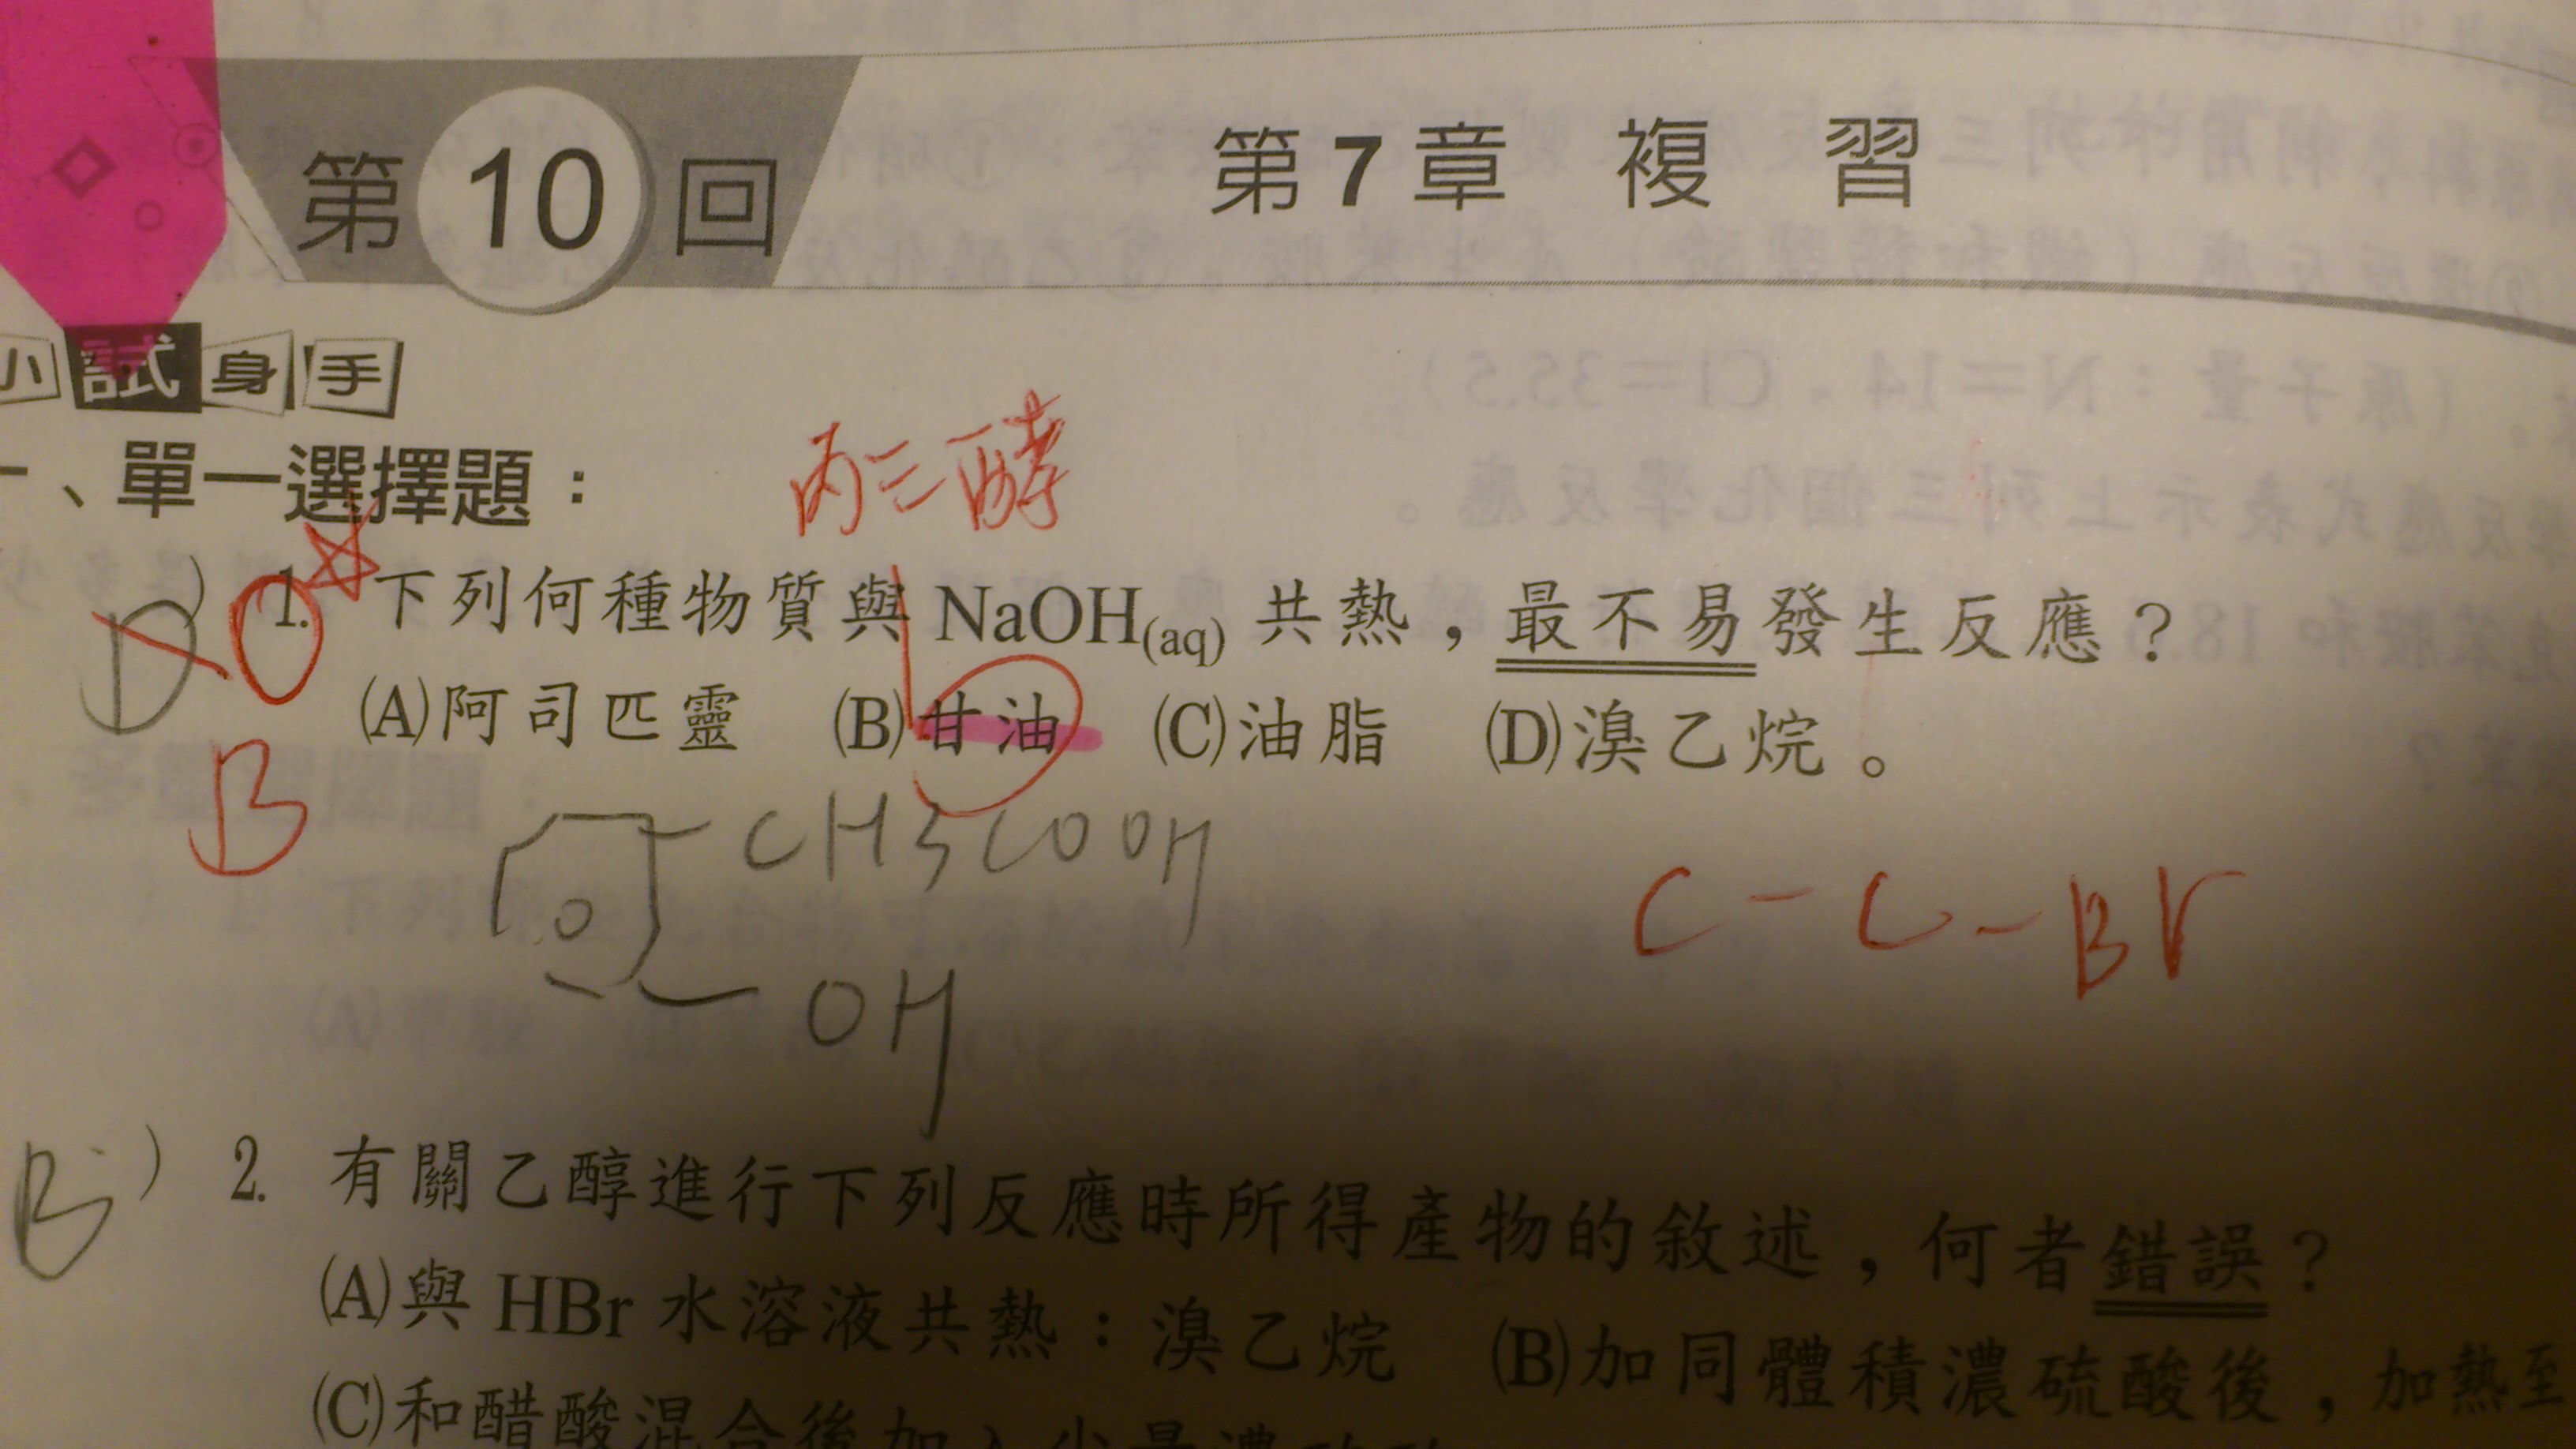 第 10 回
第7章 複習
小試身手
一、單一選擇題：
丙三醇
D ) 1. 下列何種物質與 NaOH(aq) 共熱，最不易發生反應？
(A)阿司匹靈 (B)甘油 (C)油脂 (D)溴乙烷。
B
CH3COOH
C-C-Br
OH
B ) 2. 有關乙醇進行下列反應時所得產物的敘述，何者錯誤？
(A)與 HBr 水溶液共熱：溴乙烷 (B)加同體積濃硫酸後，加熱至
(C)和醋酸混合後加入少量濃硫酸